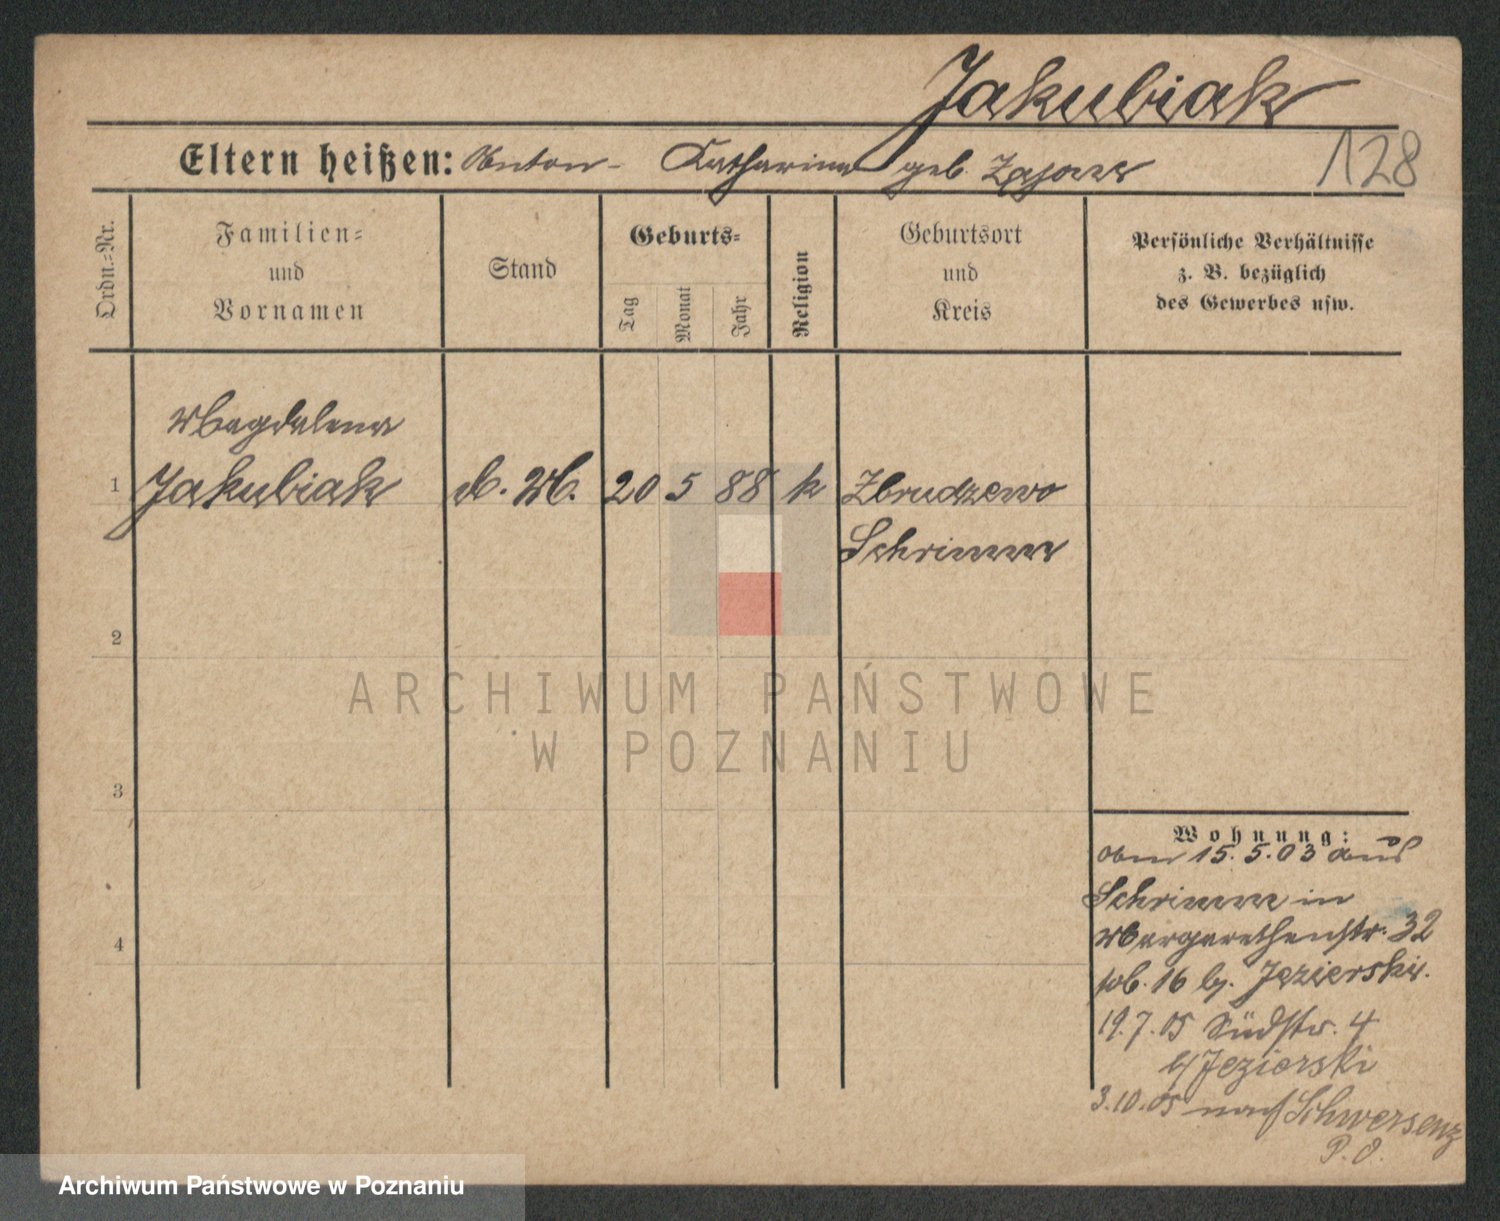 Jakubiak
Eltern heißen: Anton - Katharina geb. Zając
128
Ordn.=Nr.
Familien=
und
Vornamen
Stand
Geburts=
Tag
Monat
Jahr
Religion
Geburtsort
und
Kreis
Persönliche Verhältnisse
z. B. bezüglich
des Gewerbes usw.
Magdalena
1 Jakubiak d. M. 20 5 88 k Zbrudzewo
Schrimm
2
3
4
ARCHIWUM PAŃSTWOWE
W POZNANIU
Wohnung:
am 15.5.03 aus
Schrimm in
Margarethenstr. 32
16 b. Jezierski.
19.7.05 Südstr. 4
b/ Jezierski
3.10.05 nach Schwersenz
P. O.
Archiwum Państwowe w Poznaniu